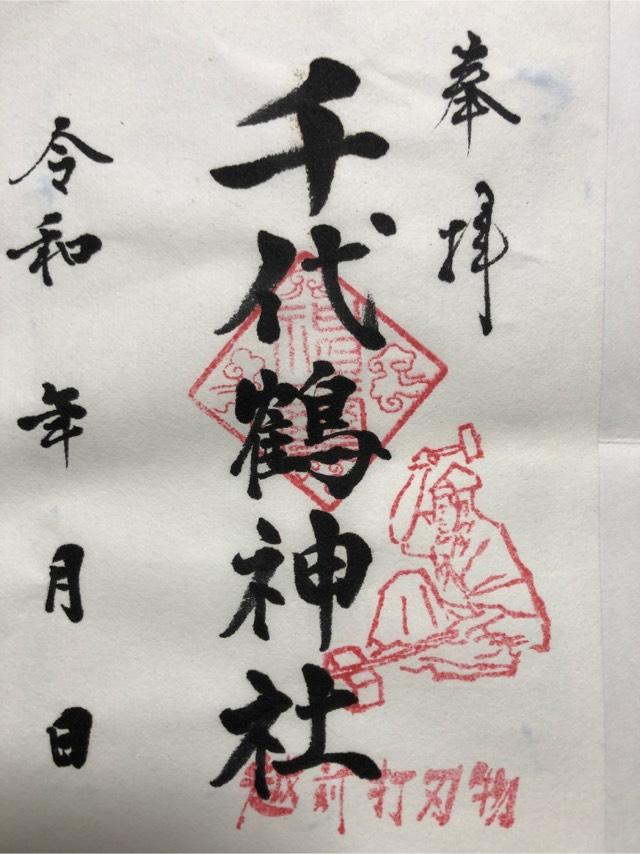 奉拝
千代鶴神社
越前打刃物
令和 年 月 日